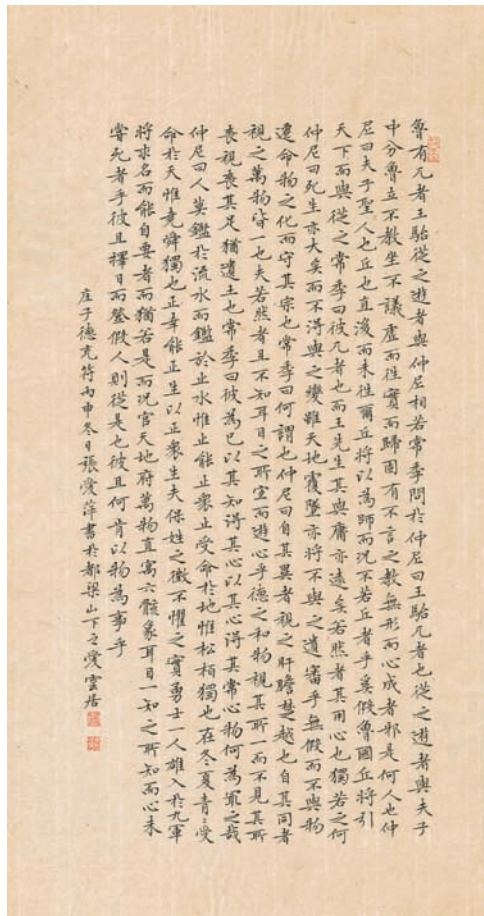 魯有兀者王駘從之遊者與仲尼相若常季問於仲尼曰王駘兀者也從之遊者與夫子
中分魯立不教坐不議虛而往實而歸固有不言之教無形而心成者邪是何人也仲
尼曰夫子聖人也丘也直後而未往爾丘將以為師而況不若丘者乎奚假魯國丘將引
天下而與從之常季曰彼兀者也而王先生其與庸亦遠矣若然者其用心也獨若之何
仲尼曰死生亦大矣而不得與之變雖天地覆墜亦將不與之遺審乎無假而不與物
遷命物之化而守其宗也常季曰何謂也仲尼曰自其異者視之肝膽楚越也自其同者
視之萬物皆一也夫若然者且不知耳目之所宜而遊心乎德之和物視其所一而不見其所
喪視喪其足猶遺土也常季曰彼為己以其知得其心以其心得其常心物何為冣之哉
仲尼曰人莫鑑於流水而鑑於止水惟止能止衆止受命於地惟松柏獨也在冬夏青〻受
命於天惟堯舜獨也正幸能正生以正衆生夫保始之徵不懼之實勇士一人雄入於九軍
將求名而能自要者而猶若是而况官天地府萬物直寓六骸象耳目一知之所知而心未
嘗死者乎彼且擇日而登假人則從是也彼且何肯以物為事乎
庄子德充符丙申冬日張愛萍書於都梁山下之愛雲居